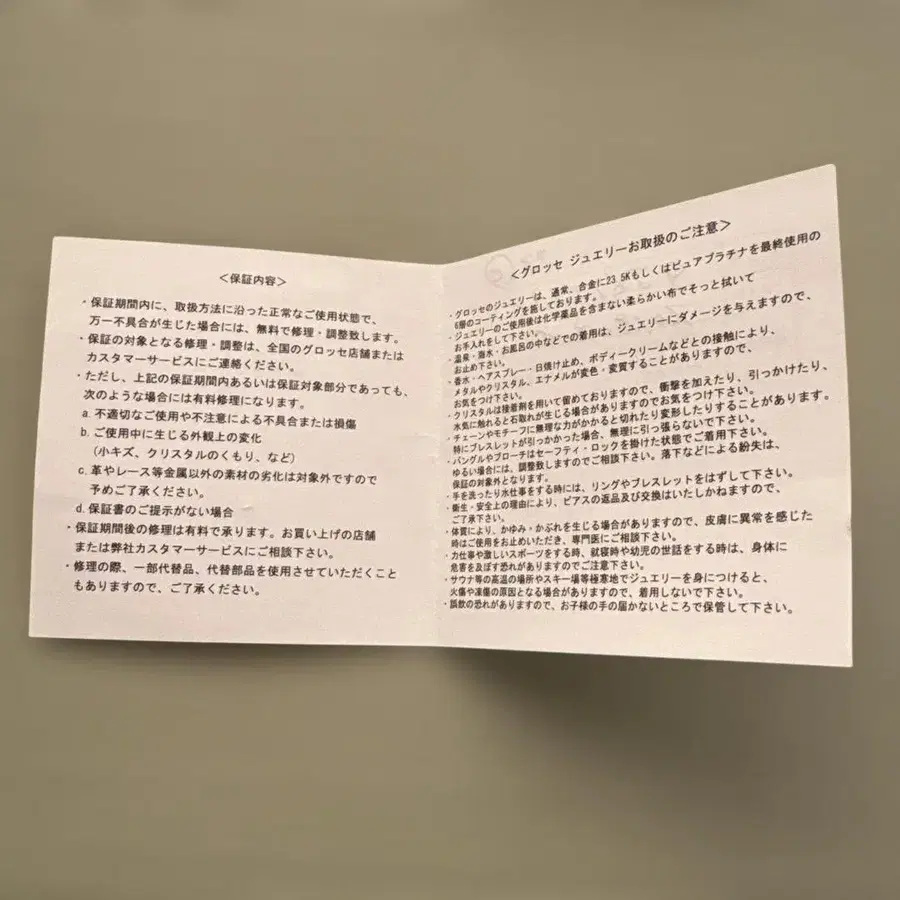 ＜保証内容＞
・保証期間内に、取扱方法に沿った正常なご使用状態で、
万一不具合が生じた場合には、無料で修理・調整致します。
・保証の対象となる修理・調整は、全国のグロッセ店舗または
カスタマーサービスにご連絡ください。
・ただし、上記の保証期間内あるいは保証対象部分であっても、
次のような場合には有料修理になります。
a. 不適切なご使用や不注意による不具合または損傷
b. ご使用中に生じる外観上の変化
（小キズ、クリスタルのくもり、など）
c. 革やレース等金属以外の素材の劣化は対象外ですので
予めご了承ください。
d. 保証書のご提示がない場合
・保証期間後の修理は有料で承ります。お買い上げの店舗
または弊社カスタマーサービスにご相談下さい。
・修理の際、一部代替品、代替部品を使用させていただくこと
もありますので、ご了承ください。
＜グロッセ ジュエリーお取扱のご注意＞
・グロッセのジュエリーは、通常、合金に23.5Kもしくはピュアプラチナを最終使用の
6層のコーティングを施しております。
・ジュエリーのご使用後は化学薬品を含まない柔らかい布でそっと拭いて
お手入れをして下さい。
・温泉・海水・お風呂の中などでの着用は、ジュエリーにダメージを与えますので、
お止め下さい。
・香水・ヘアスプレー・日焼け止め、ボディークリームなどとの接触により、
メタルやクリスタル、エナメルが変色・変質することがありますので、
お気をつけ下さい。
・クリスタルは接着剤を用いて留めておりますので、衝撃を加えたり、引っかけたり、
水気に触れると石取れが生じる場合がありますのでお気をつけ下さい。
・チェーンやモチーフに無理な力がかかると切れたり変形したりすることがあります。
特にブレスレットが引っかかった場合、無理に引っ張らないで下さい。
・バングルやブローチはセーフティ・ロックを掛けた状態でご着用下さい。
ゆるい場合には、調整致しますのでご相談下さい。落下などによる紛失は、
保証の対象外となります。
・手を洗ったり水仕事をする時には、リングやブレスレットをはずして下さい。
・衛生・安全上の理由により、ピアスの返品及び交換はいたしかねますので、
ご了承下さい。
・体質により、かゆみ・かぶれを生じる場合がありますので、皮膚に異常を感じた
時はご使用をお止めいただき、専門医にご相談下さい。
・力仕事や激しいスポーツをする時、就寝時や幼児の世話をする時は、身体に
危害を及ぼす恐れがありますのでご注意下さい。
・サウナ等の高温の場所やスキー場等極寒地でジュエリーを身につけると、
火傷や凍傷の原因となる場合がありますので、着用しないで下さい。
・誤飲の恐れがありますので、お子様の手の届かないところで保管して下さい。